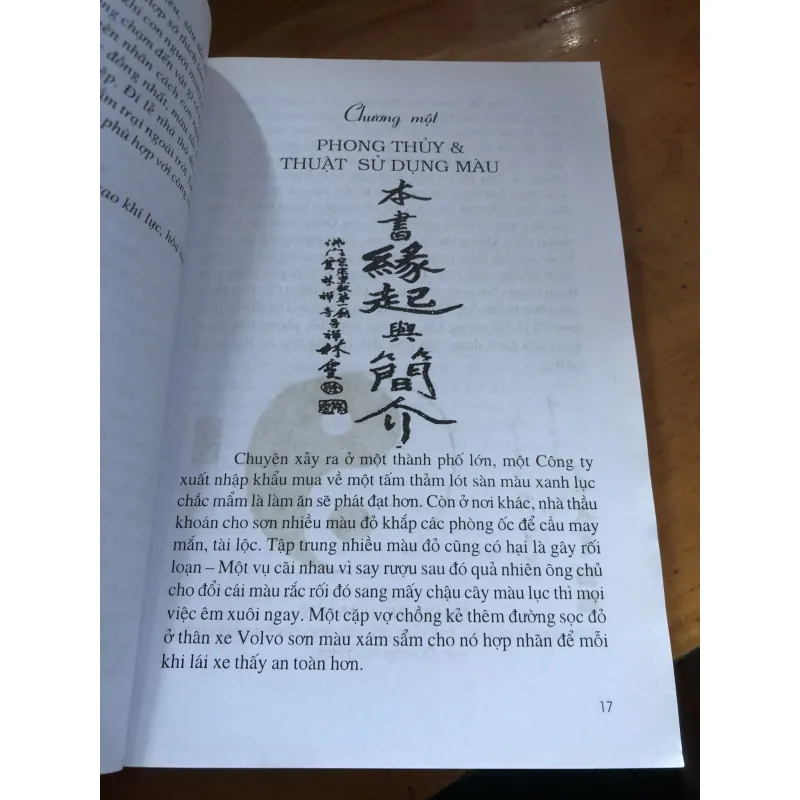 hợp sở thích
Khi con người
chạm đến vài
nhân cách con
đồng nhất, màu
Đi lễ nhà thờ
trại ngoài trời
phù hợp với công
cao khí lực, hòa
Chương một
PHONG THỦY &
THUẬT SỬ DỤNG MÀU
本書緣起與簡介
林雲
Chuyện xảy ra ở một thành phố lớn, một Công ty
xuất nhập khẩu mua về một tấm thảm lót sàn màu xanh lục
chắc mẩm là làm ăn sẽ phát đạt hơn. Còn ở nơi khác, nhà thầu
khoán cho sơn nhiều màu đỏ khắp các phòng ốc để cầu may
mắn, tài lộc. Tập trung nhiều màu đỏ cũng có hại là gây rối
loạn – Một vụ cãi nhau vì say rượu sau đó quả nhiên ông chủ
cho đổi cái màu rắc rối đó sang mấy chậu cây màu lục thì mọi
việc êm xuôi ngay. Một cặp vợ chồng kẻ thêm đường sọc đỏ
ở thân xe Volvo sơn màu xám sẩm cho nó hợp nhãn để mỗi
khi lái xe thấy an toàn hơn.
17